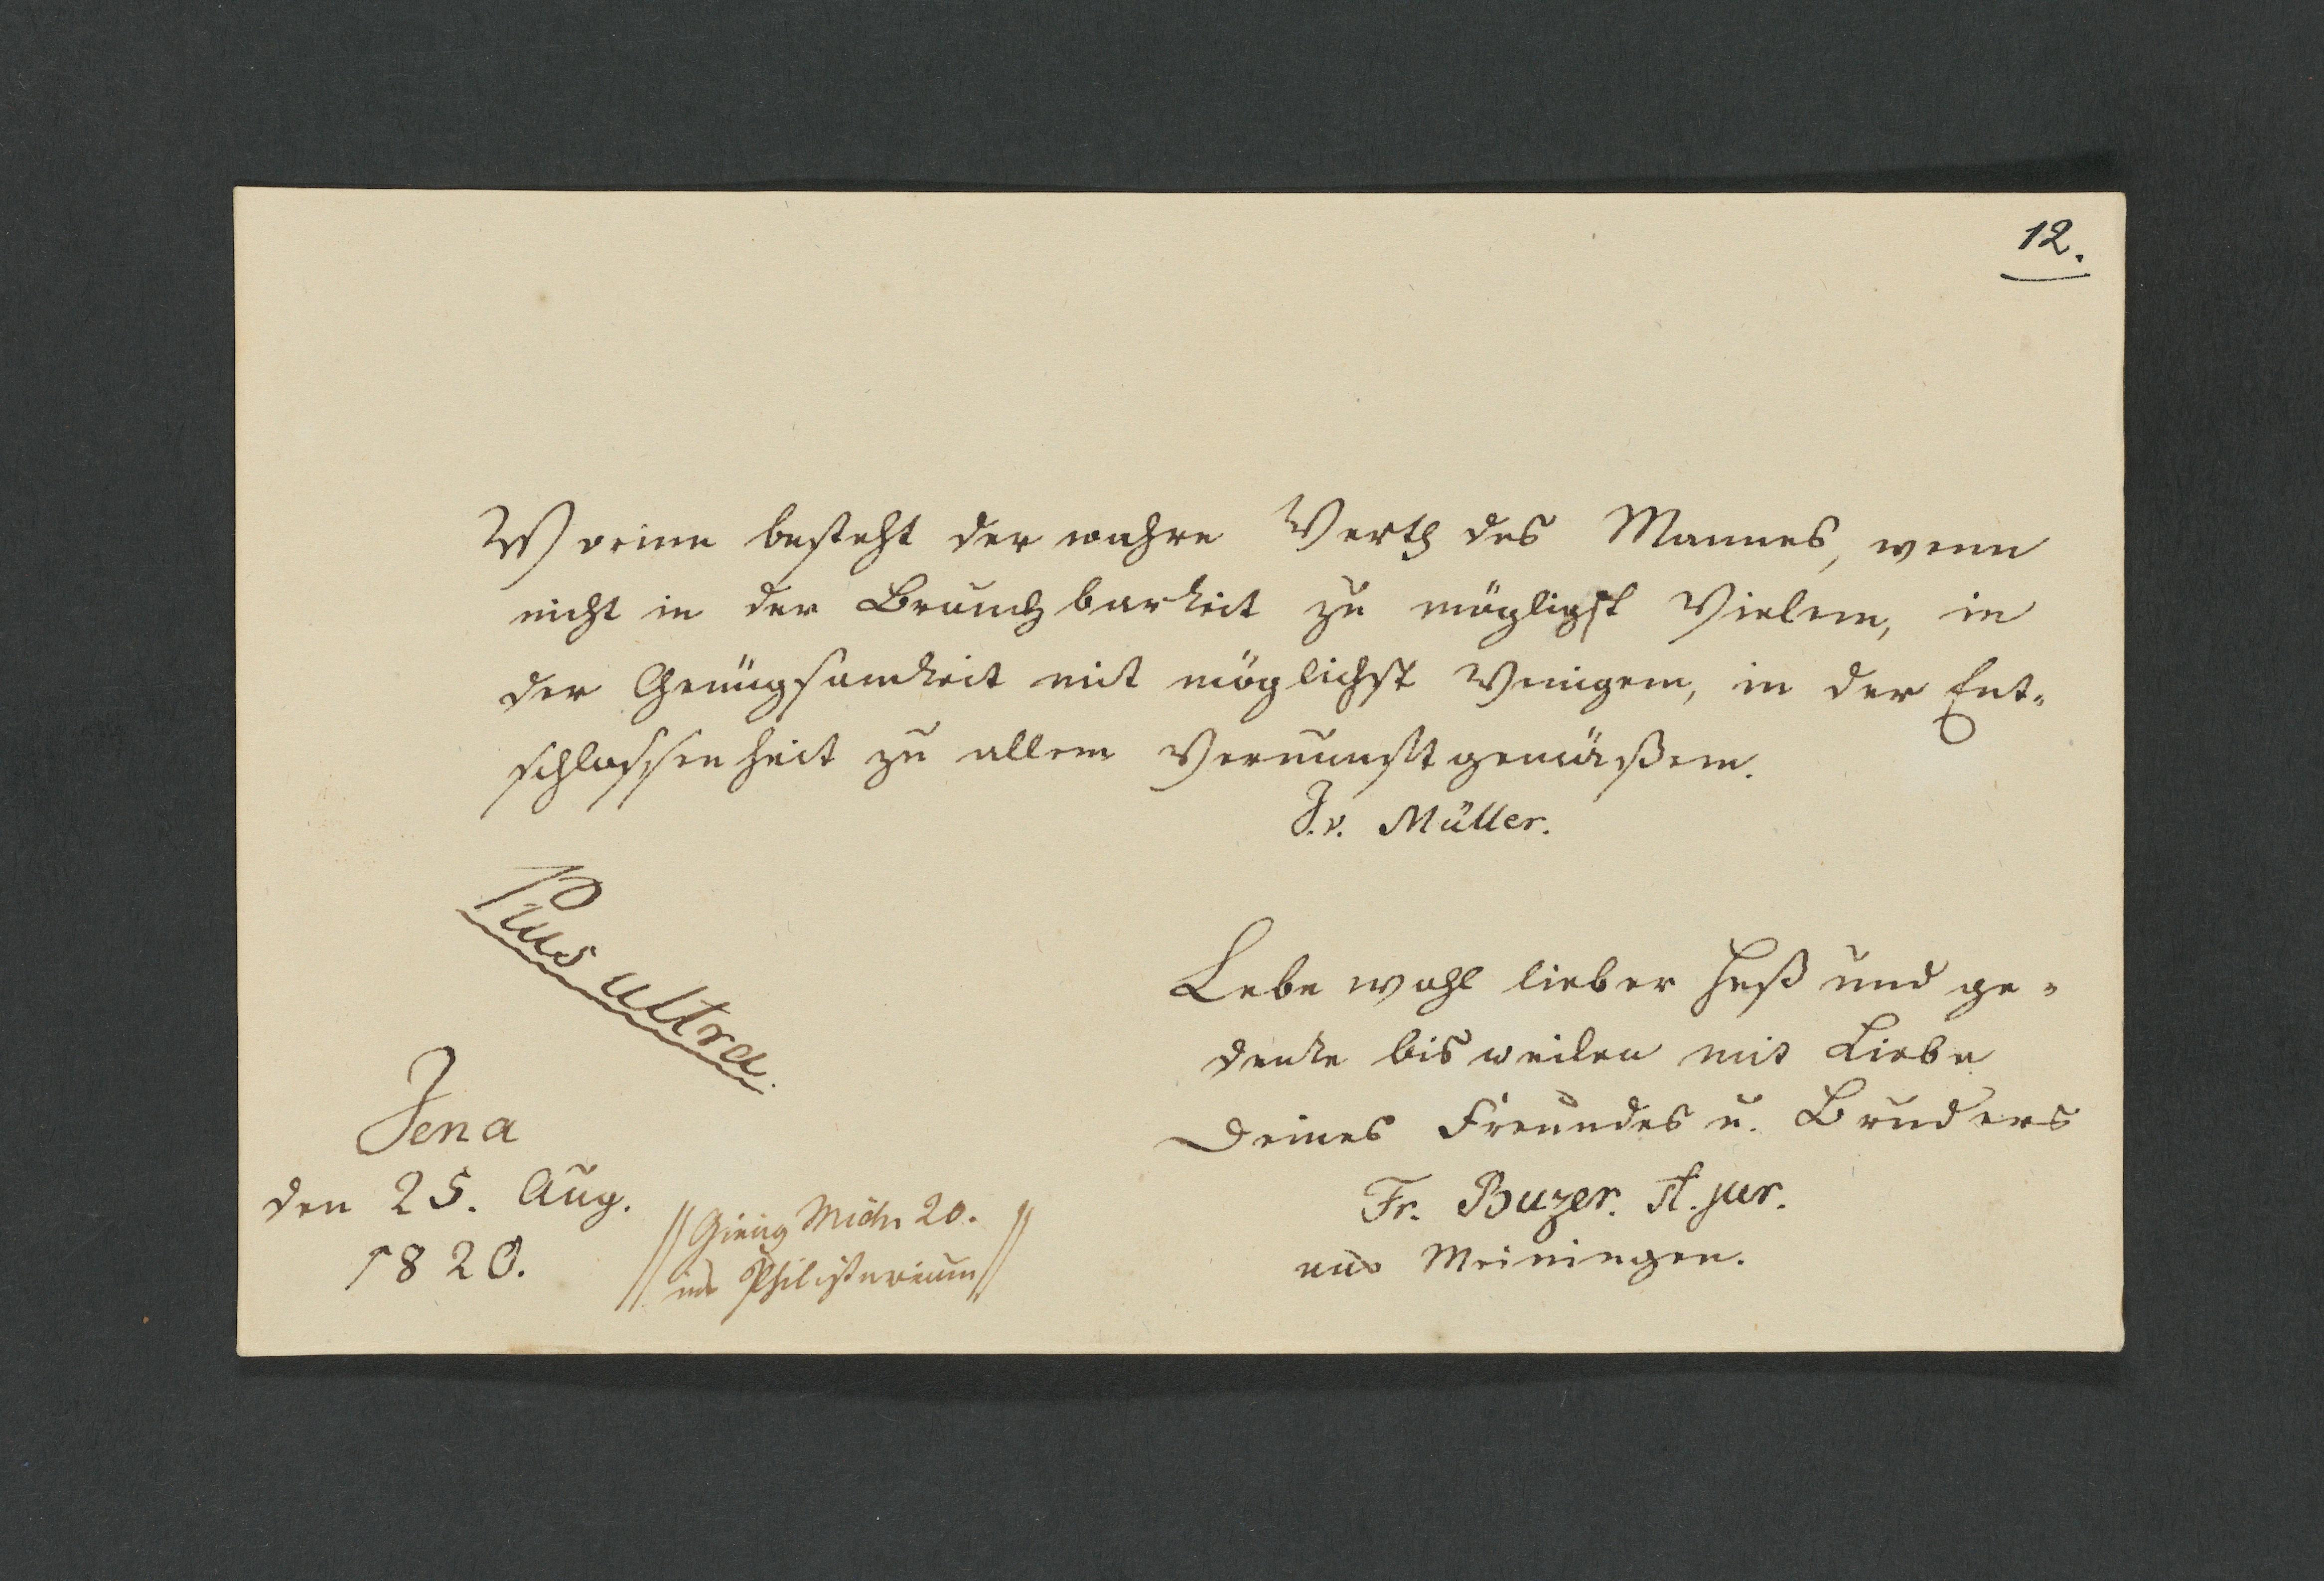 12.
Worinn besteht der wahre Werth des Mannes, wenn
nicht in der Brauchbarkeit zu möglichst Vielem, in
der Genügsamkeit mit möglichst Wenigem, in der Ent-
schlossenheit zu allem Vernunftgemäßem.
J. v. Müller.
Plus ultra.
Lebe wohl lieber Heß und ge-
denke bisweilen mit Liebe
Deines Freundes u. Bruders
Fr. Buzer. st. jur.
aus Meiningen.
Jena
den 25. Aug.
1820.
// Gieng Mich. 20. //
// ins Philisterium //